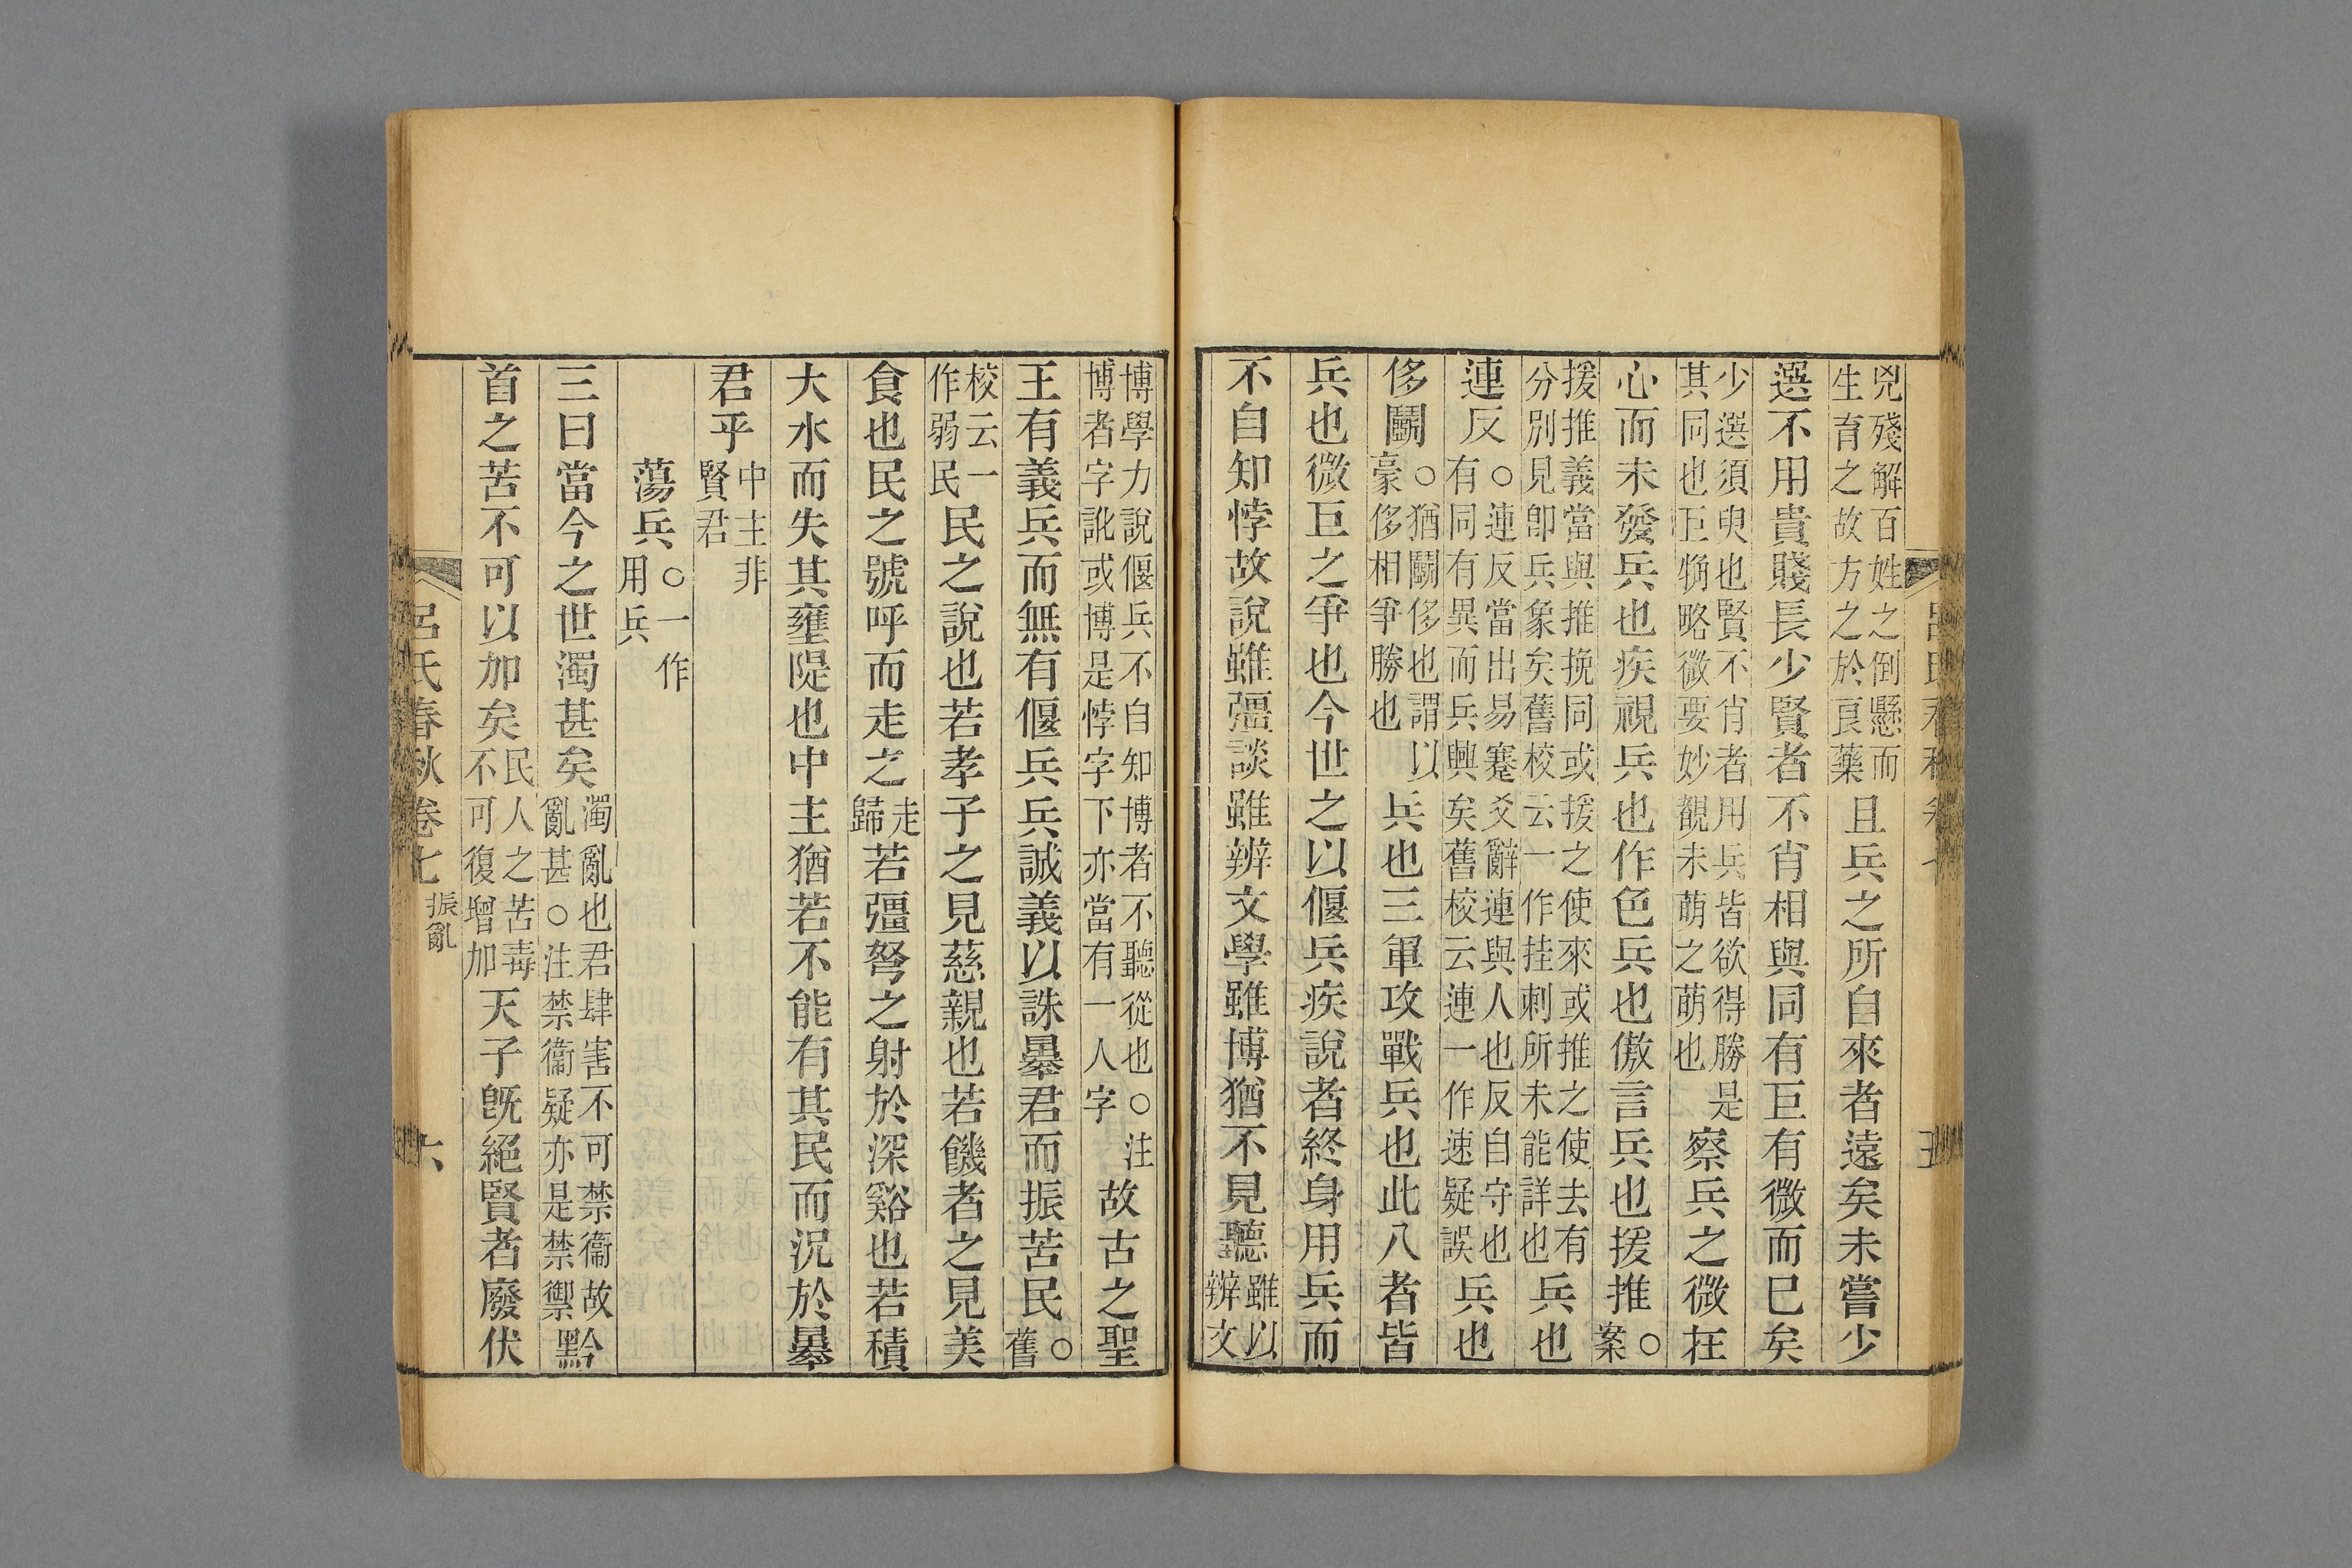 兇殘解百姓之倒懸而生育之故方之於良藥且兵之所自來者遠矣未嘗少
選不用貴賤長少賢者不肖相與同有巨有微而已矣
少選須臾也賢不肖者用兵皆欲得勝是其同也巨觕略微要妙覩未萌之萌也察兵之微在
心而未發兵也疾視兵也作色兵也傲言兵也援推○案
援推義當與推挽同或援之使來或推之使去有分別見卽兵象矣舊校云一作挂刺所未能詳也兵也
連反○連反當出易蹇爻辭連與人也反自守也有同有異而兵興矣舊校云連一作速疑誤兵也
侈鬭○猶鬭侈也謂以豪侈相爭勝也兵也三軍攻戰兵也此八者皆
兵也微巨之爭也今世之以偃兵疾說者終身用兵而
不自知悖故說雖彊談雖辨文學雖博猶不見聽雖以辨文
博學力說偃兵不自知博者不聽從也○注博者字訛或博是悖字下亦當有一人字故古之聖
王有義兵而無有偃兵兵誠義以誅暴君而振苦民○舊
校云一作弱民民之說也若孝子之見慈親也若饑者之見美
食也民之號呼而走之走歸若彊弩之射於深谿也若積
大水而失其壅隄也中主猶若不能有其民而況於暴
君乎中主非賢君
蕩兵○一作用兵
三曰當今之世濁甚矣濁亂也君肆害不可禁衞故亂甚○注禁衞疑亦是禁禦黔
首之苦不可以加矣民人之苦毒不可復增加天子旣絕賢者廢伏
呂氏春秋卷七 振亂 六